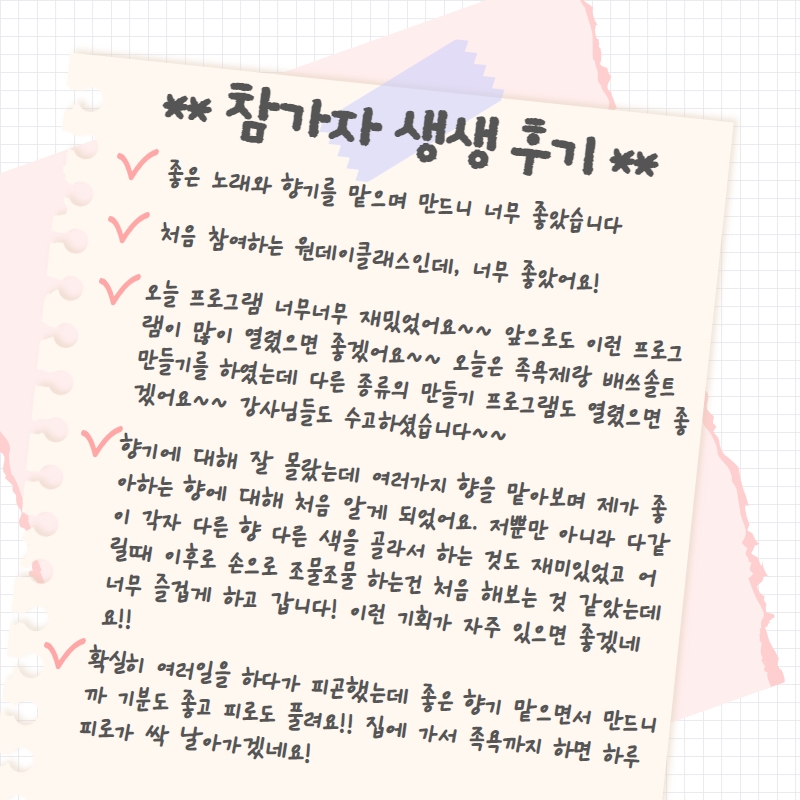 ** 참가자 생생 후기 **
좋은 노래와 향기를 맡으며 만드니 너무 좋았습니다
처음 참여하는 원데이클래스인데, 너무 좋았어요!
오늘 프로그램 너무너무 재밌었어요~~ 앞으로도 이런 프로그
램이 많이 열렸으면 좋겠어요~~ 오늘은 족욕제랑 배쓰솔트
만들기를 하였는데 다른 종류의 만들기 프로그램도 열렸으면 좋
겠어요~~ 강사님들도 수고하셨습니다~~
향기에 대해 잘 몰랐는데 여러가지 향을 맡아보며 제가 좋
아하는 향에 대해 처음 알게 되었어요. 저뿐만 아니라 다같
이 각자 다른 향 다른 색을 골라서 하는 것도 재미있었고 어
릴때 이후로 손으로 조물조물 하는건 처음 해보는 것 같았는데
너무 즐겁게 하고 갑니다! 이런 기회가 자주 있으면 좋겠네
요!!
확실히 여러일을 하다가 피곤했는데 좋은 향기 맡으면서 만드니
까 기분도 좋고 피로도 풀려요!! 집에 가서 족욕까지 하면 하루
피로가 싹 날아가겠네요!